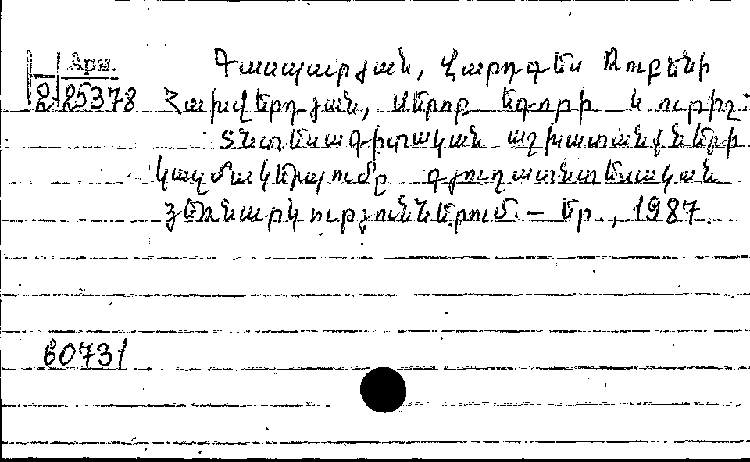 Արմ.
2/25378
Գասպարյան, Վարդգես Ռուբենի
Հախվերդյան, Սերոբ Եգորի և ուրիշ.
Տնտեսագիտական աշխատանքների
կազմակերպումը գյուղատնտեսական
ձեռնարկություններում. — Եր., 1987.
60731